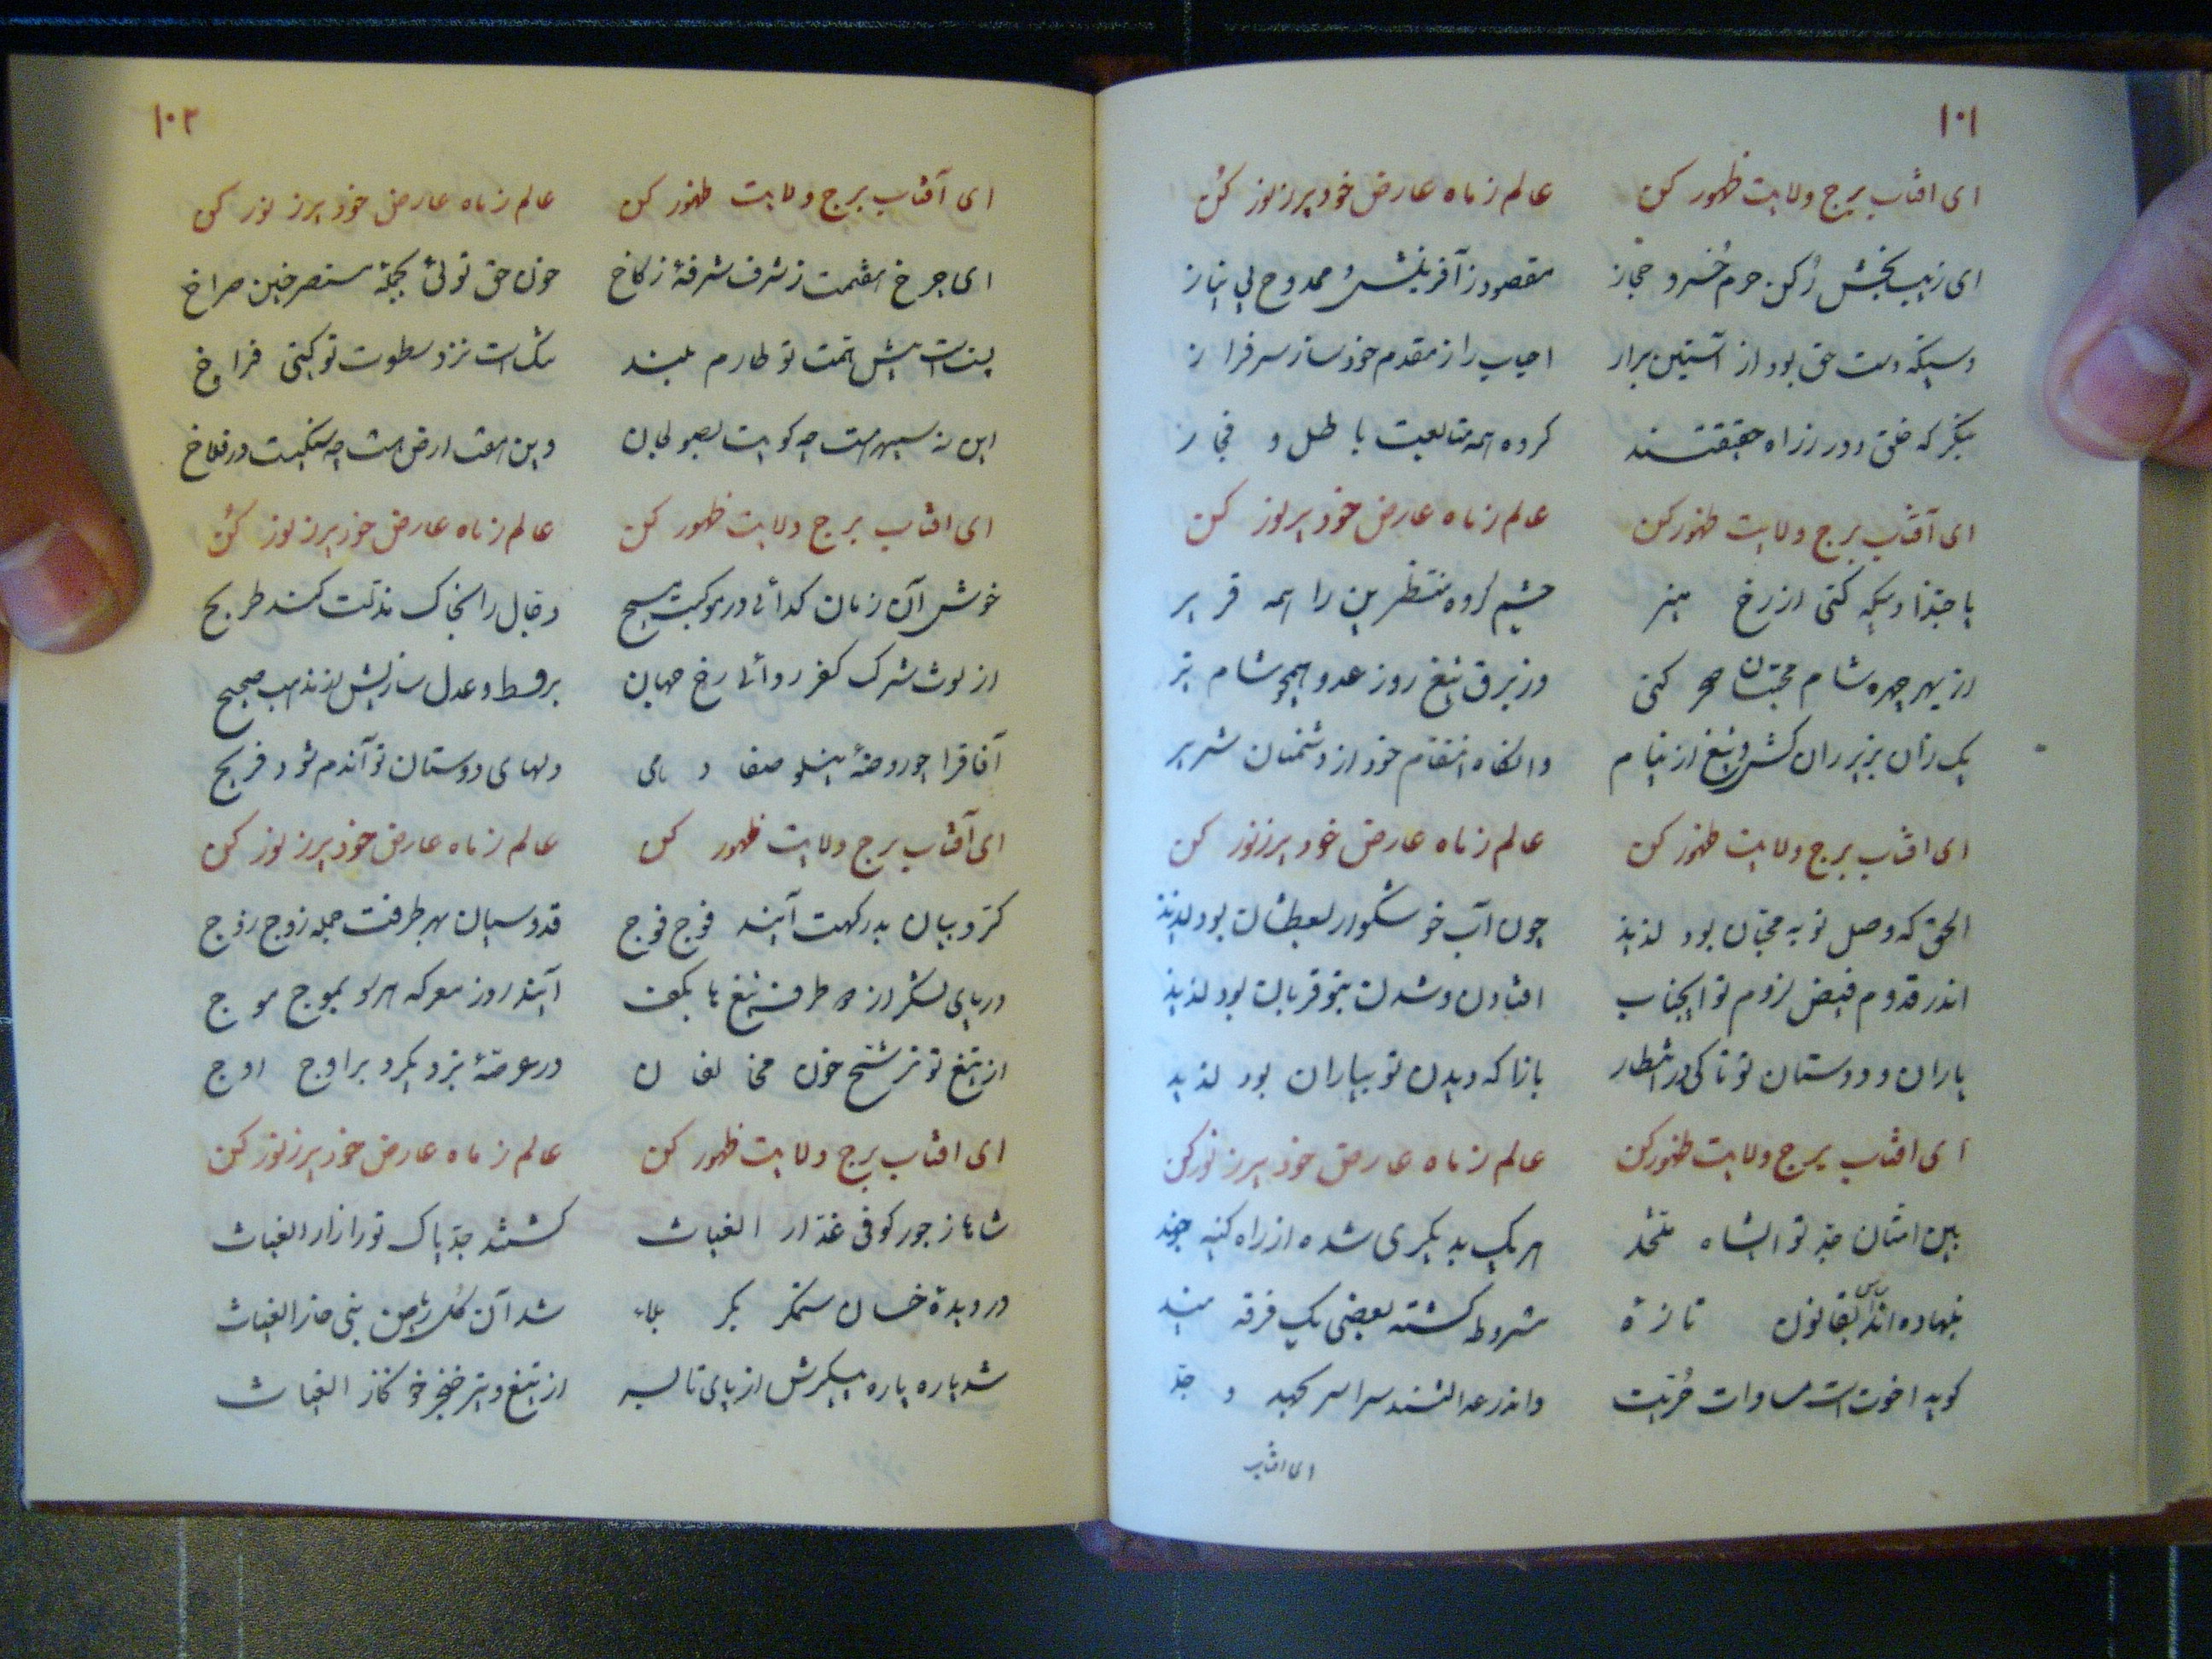 ۱۰۱
ای افتاب برج ولایت ظهور کن عالم ز ماه عارض خود پر ز نور کن
ای زیب بخش رکن حرم خسرو حجاز مقصود ز آفرینش و ممدوح بی نیاز
دستیکه دست حق بود از آستین برار احباب را ز مقدم خود ساز سرفراز
بنگر که خلق دور ز راه حقیقتند کرده همه متابعت باطل و مجاز
ای آفتاب برج ولایت ظهور کن عالم ز ماه عارض خود پر نور کن
یا حبذا دمیکه کنی از رخ منیر چشم گروه منتظرین را همه قریر
از مهر چهره شام محبتان سحر کنی وز برق تیغ روز عدو همچو شام تیر
یک ران بزیر ران کش و تیغ از نیام وانگاه انتقام خود از دشمنان شریر
ای افتاب برج ولایت ظهور کن عالم ز ماه عارض خود پر ز نور کن
الحق که وصل تو به محبان بود لذیذ چون آب خوشگوار بعطشان بود لذیذ
اندر قدوم فیض لزوم تو ایجناب افتادن و شدن بتو قربان بود لذیذ
یاران و دوستان تو تا کی در انتظار بازا که دیدن تو بیاران بود لذیذ
ای افتاب برج ولایت ظهور کن عالم ز ماه عارض خود پر ز نور کن
بین امتان جد تو ایشاه متحد هر یک به دیگری شده از راه کینه
بنهاده اند بقانون تازه مشروطه گشته بعضی یک فرقه
گوید اخوت است مساوات حریت واندر عدالتند سراسر بجهد و جد
ای افتاب
۱۰۲
ای آفتاب برج ولایت ظهور کن عالم ز ماه عارض خود پر ز نور کن
ای چرخ هفتمت ز شرف شرفهٔ ز کاخ خون حق توئی بجملهٔ مستصرخین صراخ
پست است پیش همت تو طارم بلند تنگ است نزد سطوت تو گیتی فراخ
این نه سپهر هست چه گویت بصولجان وین هفت ارض هست چه سنگیت در فلاخ
ای افتاب برج ولایت ظهور کن عالم ز ماه عارض خود پر ز نور کن
خوش آن زمان که آئی و در موکبت مسیح دجال را بخاک مذلت کند طریح
از لوث شرک کفر زدائی رخ جهان بر قسط و عدل سازیش از مذهب صحیح
آفاق را چو روضهٔ مینو صفا دهی دلهای دوستان تو آندم شود فریح
ای آفتاب برج ولایت ظهور کن عالم ز ماه عارض خود پر ز نور کن
کروبیان بدرگهت آیند فوج فوج قدوسیان بهر طرفت جمله زوج زوج
دریای لشکر از هر طرف تیغ ها بکف آیند روز معرکه هر سو بموج موج
از تیغ تو ترشح خون مخالفان در عرصهٔ نبرد بگردد براوج اوج
ای افتاب برج ولایت ظهور کن عالم ز ماه عارض خود پر ز نور کن
شاها ز جور کوفی غدار الغیاث کشتند جد پاک تو را زار الغیاث
در دیدهٔ خسان ستمگر بکربلاء شد آن گل ریاض نبی خار الغیاث
شد پاره پاره پیکرش از پای تا بسر از تیغ و تیر خنجر خونخوار الغیاث